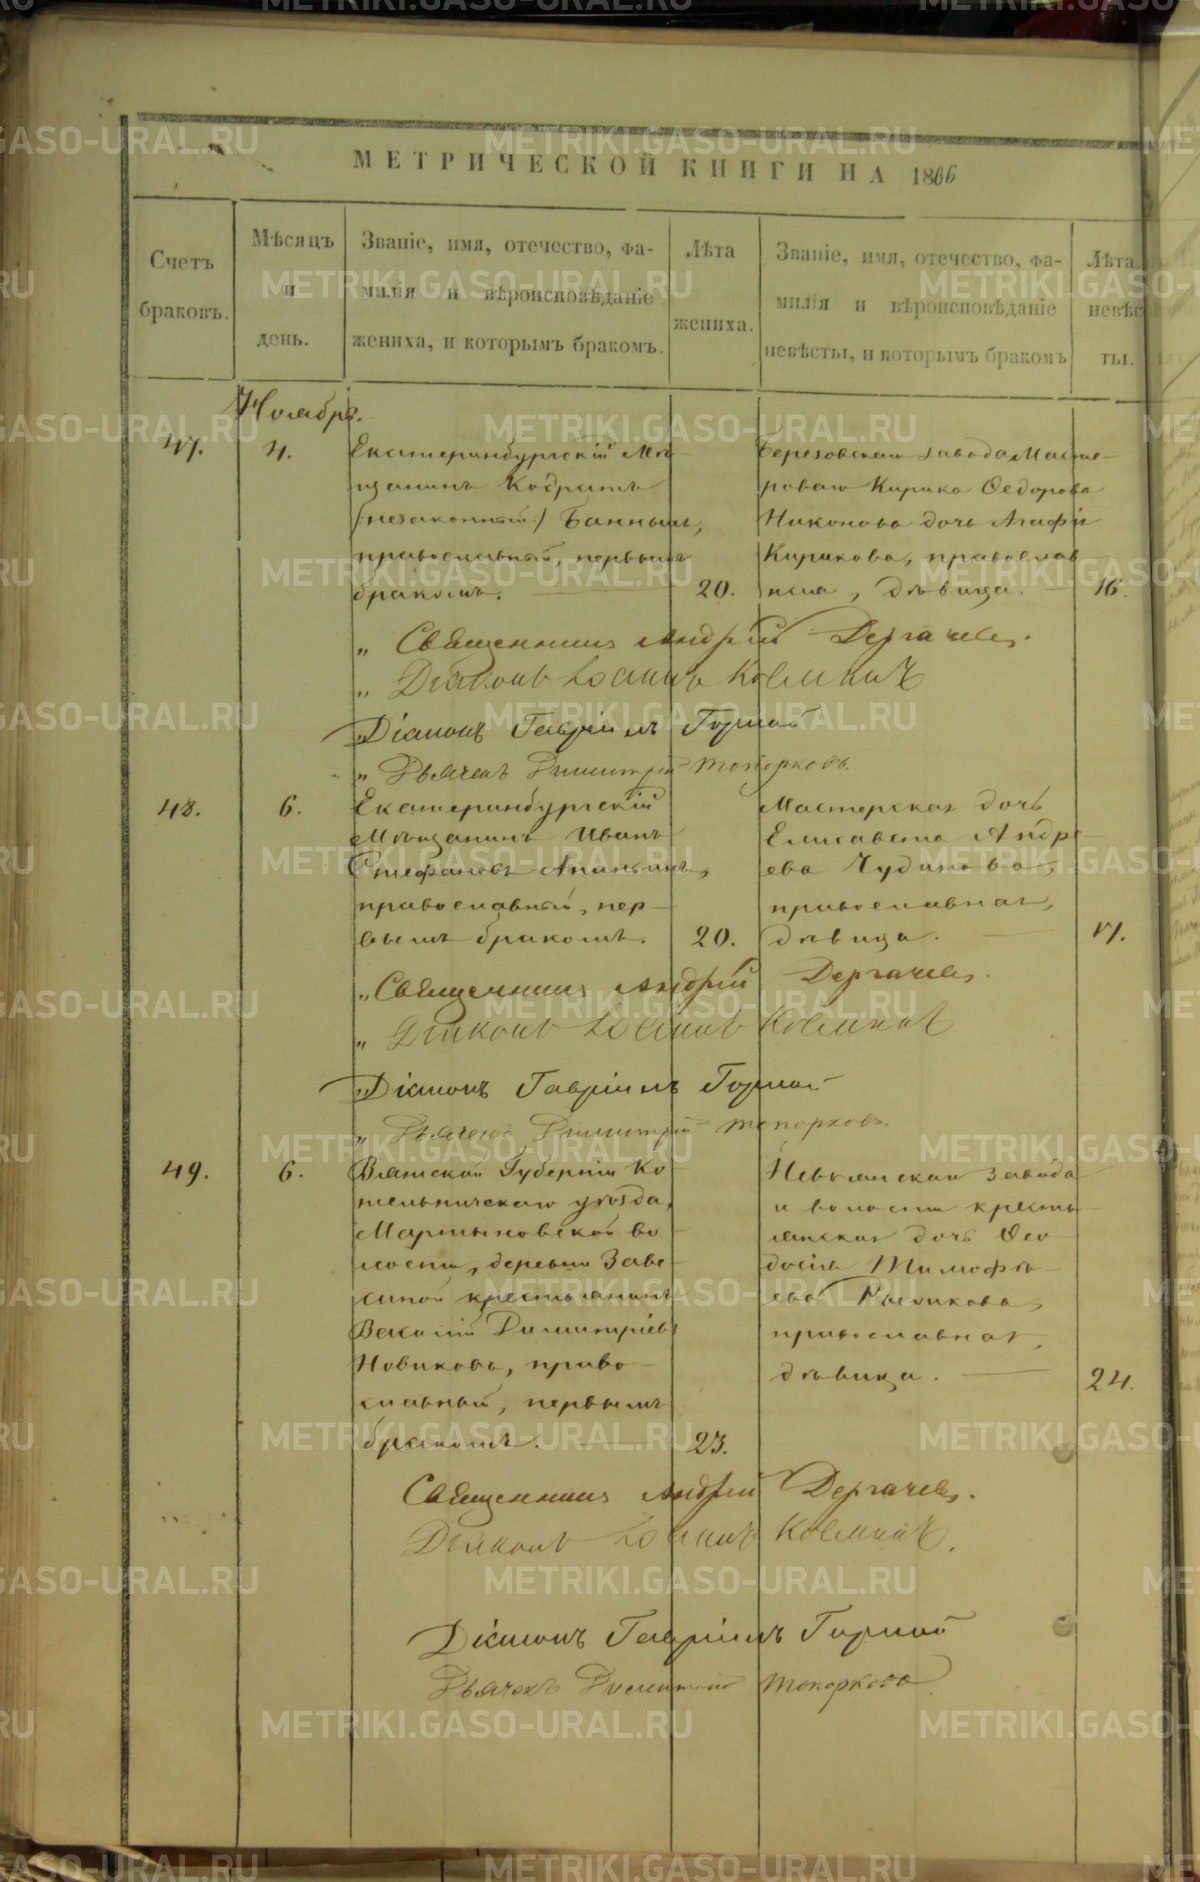 МЕТРИЧЕСКОЙ КНИГИ НА 1866
Счетъ браковъ.
Мѣсяцъ и день.
Званіе, имя, отечество, фа-
милія и вѣроисповѣданіе
жениха, и которымъ бракомъ.
Лѣта жениха.
Званіе, имя, отечество, фа-
милія и вѣроисповѣданіе
невѣсты, и которымъ бракомъ
Лѣта невѣс
ты.
Ноябрь.
47.
4.
Екатеринбургскій Мѣ-
щанинъ Кодратъ
(незаконный) Банныхъ,
православный, первымъ
бракомъ.
20.
Березовскаго завода Масте-
роваго Кирика Ѳедорова
Никонова дочь Агафія
Кирикова, православ-
ная, дѣвица.
16.
„ Священникъ Андрей Дергачевъ.
„ Діаконъ Іоаннъ
Діаконъ Гавріилъ Горной
„ Дьячекъ Димитрій Топорковъ.
48.
6.
Екатеринбургскій
Мѣщанинъ Иванъ
Стефановъ Ананьинъ,
православный, пер-
вымъ бракомъ.
20.
Мастерская дочь
Елисавета Андре-
ева Чудинова,
православная,
дѣвица.
17.
„ Священникъ Андрей Дергачевъ.
„ Діаконъ Іоаннъ
„ Діаконъ Гавріилъ Горной
„ Дьячекъ Димитрій Топорковъ.
49.
6.
Вятской Губерніи Ко-
тельническаго уѣзда,
Мартыновской во-
лости, деревни
крестьянинъ
Димитріевъ
Новиковъ, право-
славный, первымъ
бракомъ.
23.
Невьянскаго завода
и волости кресть-
янская дочь Ѳео-
досія Тимофѣ-
ева
православная,
дѣвица.
24.
Священникъ Андрей Дергачевъ.
Діаконъ Іоаннъ
Діаконъ Гавріилъ Горной
Дьячекъ Димитрій Топорковъ
METRIKI.GASO-URAL.RU